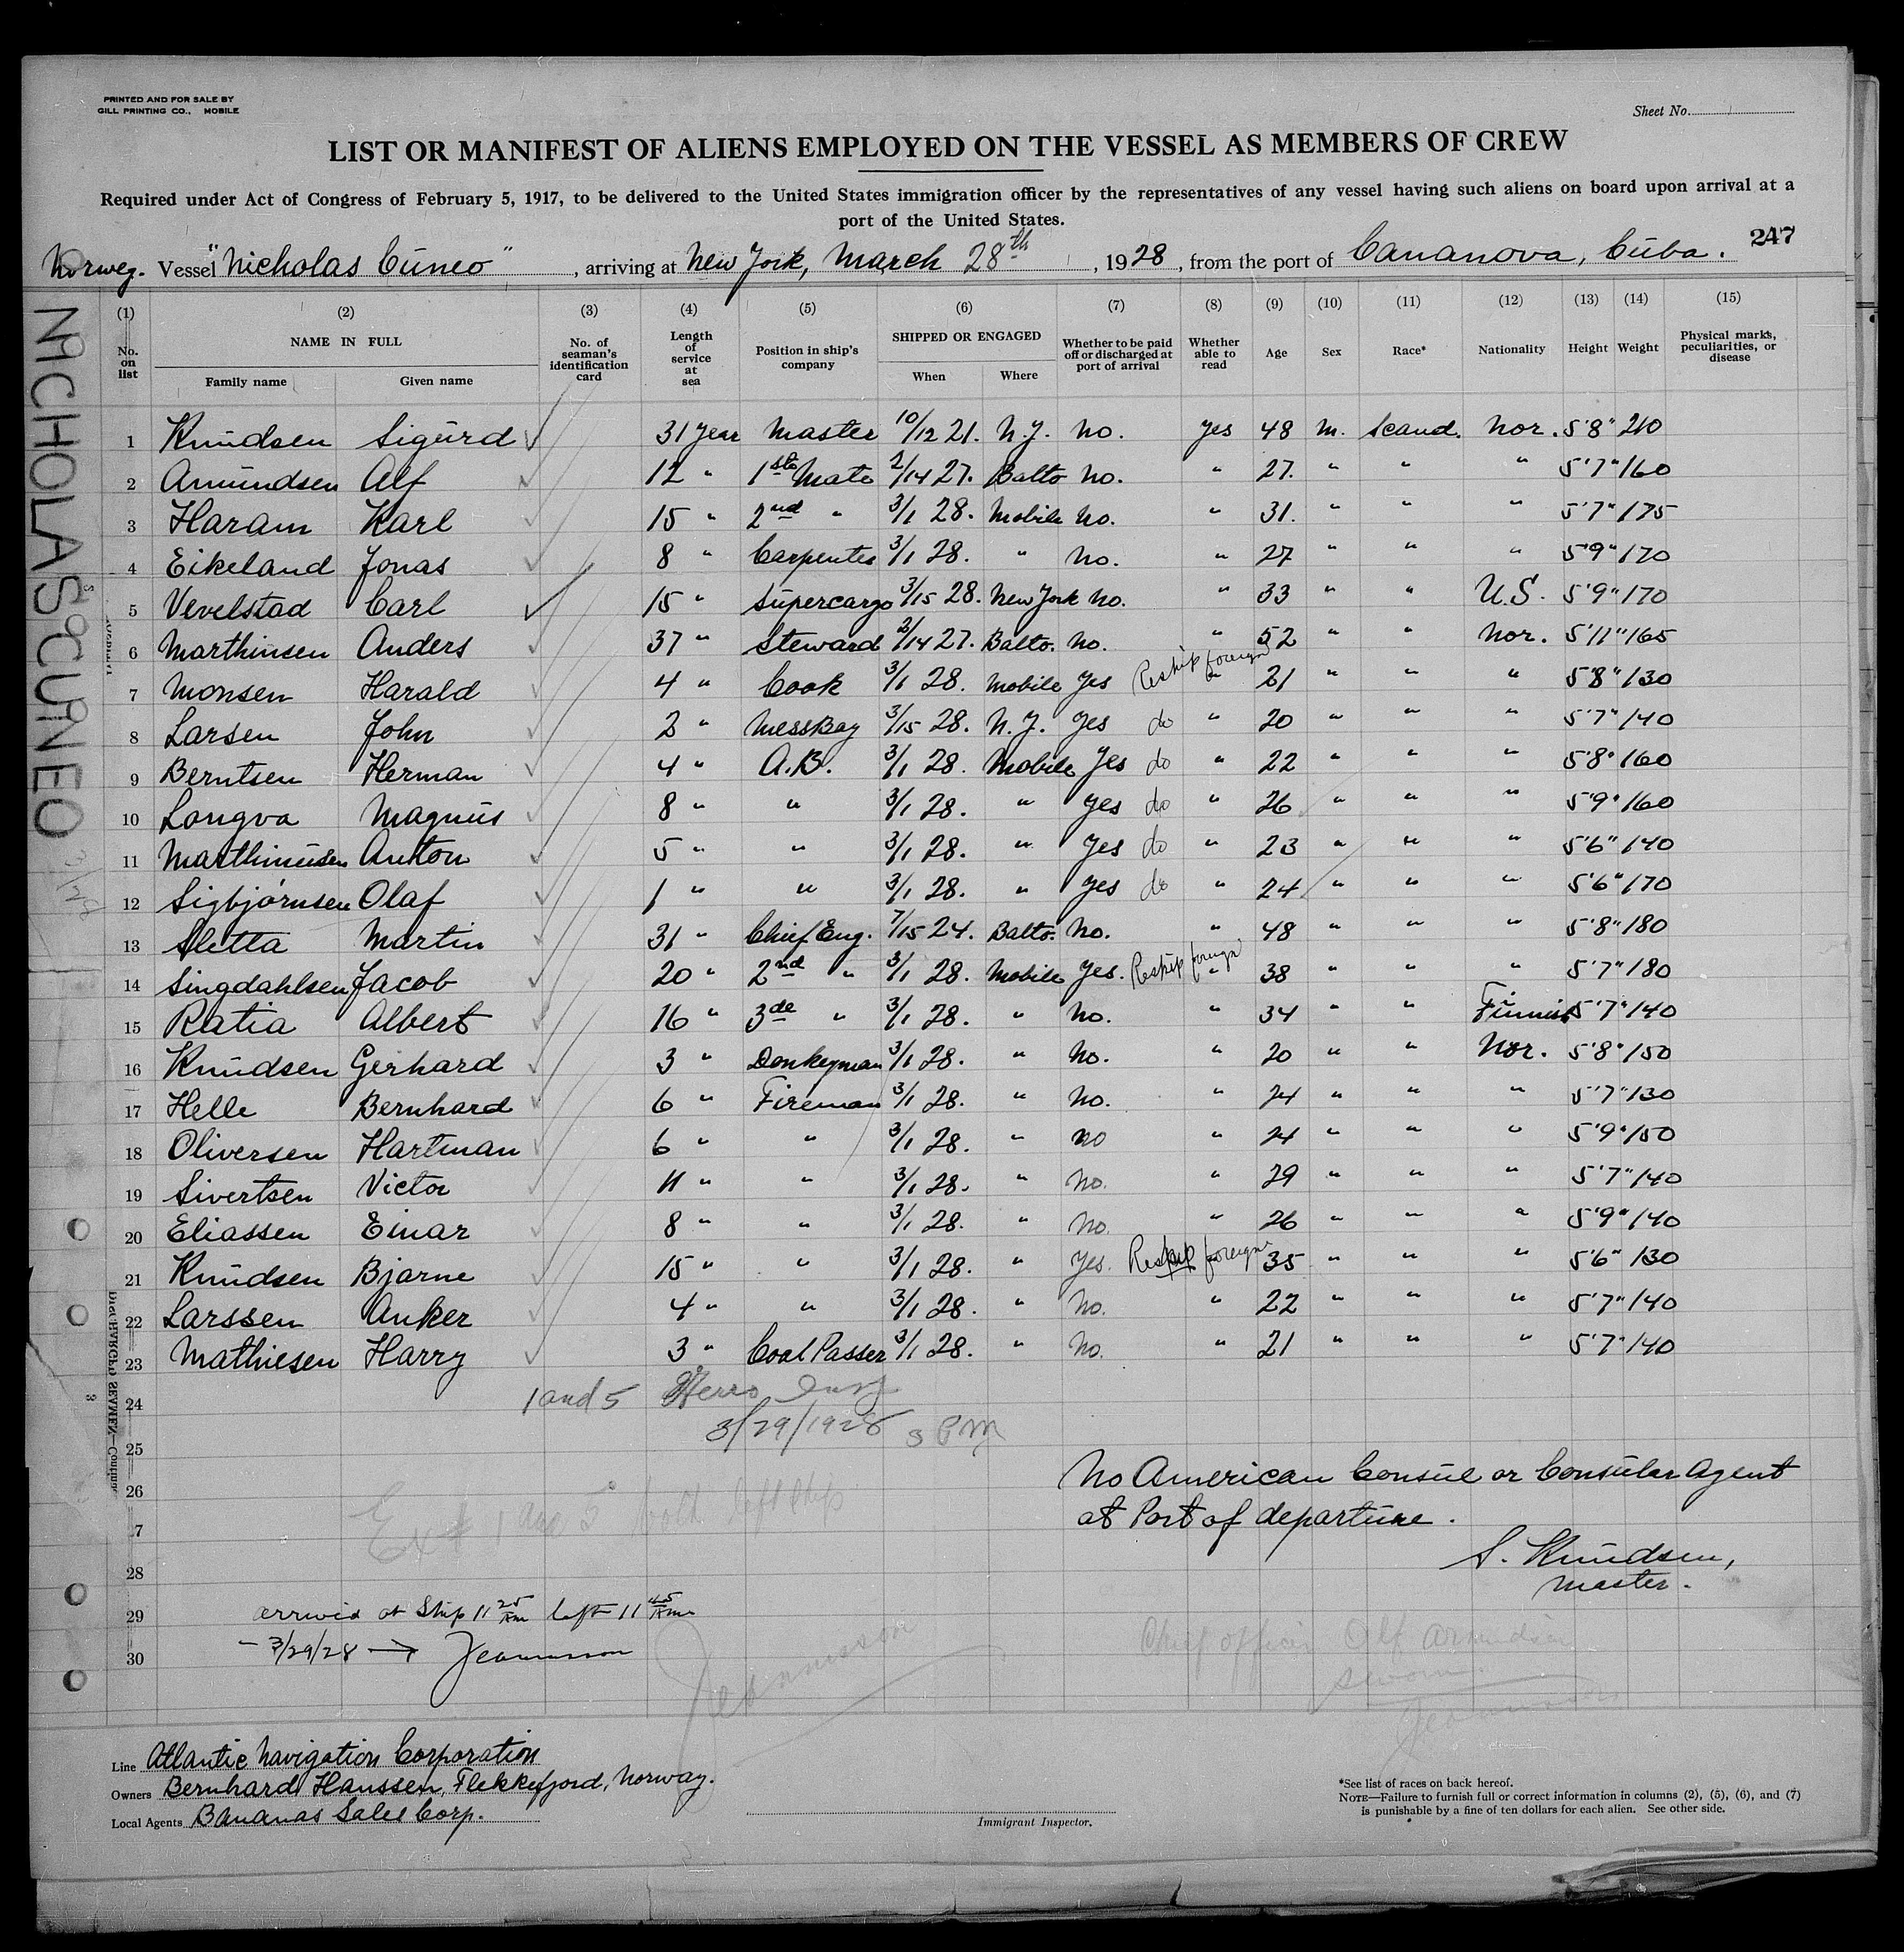 PRINTED AND FOR SALE BY
GILL PRINTING CO., MOBILE
Sheet No.
LIST OR MANIFEST OF ALIENS EMPLOYED ON THE VESSEL AS MEMBERS OF CREW
Required under Act of Congress of February 5, 1917, to be delivered to the United States immigration officer by the representatives of any vessel having such aliens on board upon arrival at a
port of the United States.
247
Norweg. Vessel "Nicholas Cuneo", arriving at New York, March 28th, 1928, from the port of Cananova, Cuba.
NICHOLAS CUNEO
(1) (2) (3) (4) (5) (6) (7) (8) (9) (10) (11) (12) (13) (14) (15)
No. on list NAME IN FULL Family name Given name No. of seaman's identification card Length of service at sea Position in ship's company SHIPPED OR ENGAGED When Where Whether to be paid off or discharged at port of arrival Whether able to read Age Sex Race* Nationality Height Weight Physical marks, peculiarities, or disease
1 Knudsen Sigurd 31 year Master 10/12 21. N.Y. No. Yes 48 M. Scand. Nor. 5'8" 210
2 Amundsen Alf 12 " 1st Mate 2/14 27. Balto No. " 27. " " " 5'7" 160
3 Haram Karl 15 " 2nd " 3/1 28. Mobile No. " 31. " " " 5'7" 175
4 Eikeland Jonas 8 " Carpenter 3/1 28. " No. " 27 " " " 5'9" 170
5 Vevelstad Carl 15 " Supercargo 3/15 28. New York No. " 33 " " U.S. 5'9" 170
6 Marthinsen Anders 37 " Steward 2/14 27. Balto. No. " 52 " " Nor. 5'11" 165
7 Monsen Harald 4 " Cook 3/1 28. Mobile Yes Reship foreign " 21 " " " 5'8" 130
8 Larsen John 2 " MessBoy 3/15 28. N.Y. Yes do " 20 " " " 5'7" 140
9 Berntsen Herman 4 " A.B. 3/1 28. Mobile Yes do " 22 " " " 5'8" 160
10 Longva Magnus 8 " " 3/1 28. " Yes do " 26 " " " 5'9" 160
11 Marthinusen Anton 5 " " 3/1 28. " Yes do " 23 " " " 5'6" 140
12 Sigbjørnsen Olaf 1 " " 3/1 28. " Yes do " 24 " " " 5'6" 170
13 Sletta Martin 31 " Chief Eng. 7/15 24. Balto. No. " 48 " " " 5'8" 180
14 Singdahlsen Jacob 20 " 2nd " 3/1 28. Mobile Yes. Reship foreign " 38 " " " 5'7" 180
15 Ratia Albert 16 " 3de " 3/1 28. " No. " 34 " " Finnish 5'7" 140
16 Knudsen Gerhard 3 " Donkeyman 3/1 28. " No. " 20 " " Nor. 5'8" 150
17 Helle Bernhard 6 " Fireman 3/1 28. " No. " 24 " " " 5'7" 130
18 Oliversen Hartman 6 " " 3/1 28. " No " 24 " " " 5'9" 150
19 Sivertsen Victor 11 " " 3/1 28. " No. " 29 " " " 5'7" 140
20 Eliassen Einar 8 " " 3/1 28. " No. " 26 " " " 5'9" 140
21 Knudsen Bjarne 15 " " 3/1 28. " Yes. Reship foreign 35 " " " 5'6" 130
22 Larssen Anker 4 " " 3/1 28. " No. " 22 " " " 5'7" 140
23 Mathiesen Harry 3 " Coal Passer 3/1 28. " No. " 21 " " " 5'7" 140
24 1 and 5
3/29/1928 3 PM
25
26 No American Consul or Consular Agent
at Port of departure.
Ex # 1 and 5 both left ship
27
S. Knudsen,
28 Master.
29 arrived at Ship 11 25 AM left 11 45 AM
30 - 3/29/28 → Jeannisson
Jeannisson
Chief officer Alf Amundsen
sworn
Jeannisson
Line Atlantic Navigation Corporation
Owners Bernhard Hanssen, Flekkefjord, Norway.
Local Agents Bananas Sales Corp.
Immigrant Inspector.
*See list of races on back hereof.
NOTE—Failure to furnish full or correct information in columns (2), (5), (6), and (7)
is punishable by a fine of ten dollars for each alien. See other side.